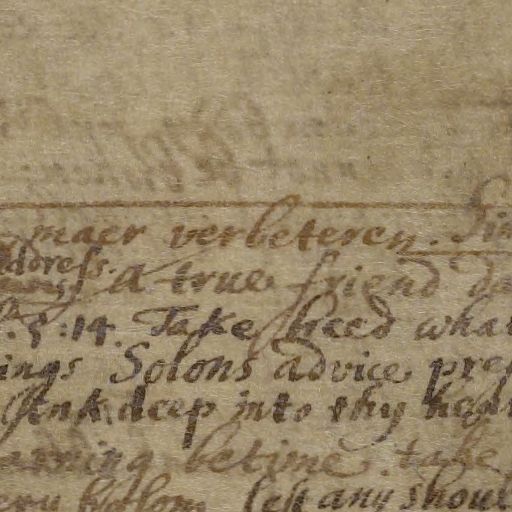 maer verbeteren.
address. A true friend
5:14. Take heed what
ings Solons advice
sink deep into thy
arning betime. take
bosom lest any shoul